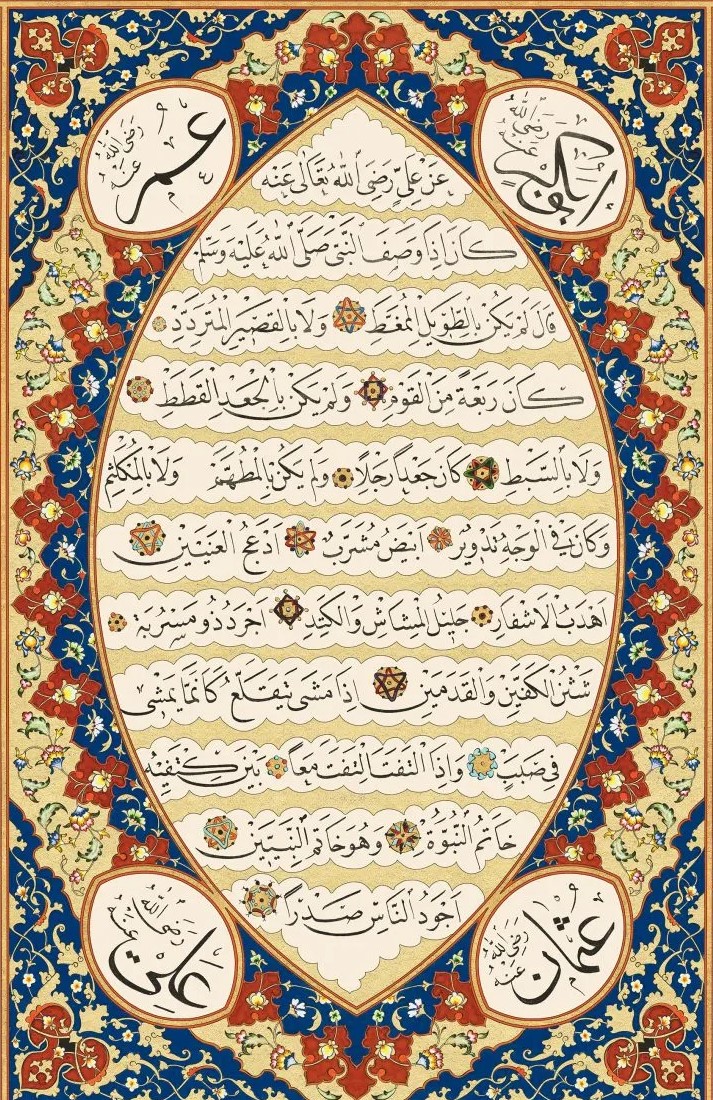 ابو بكر رضى الله عنه
عمر رضى الله عنه
عَنْ عَلِيٍّ رَضِيَ اللهُ تَعَالٰى عَنْهُ
كَانَ اِذَا وَصَفَ النَّبِيَّ صَلَّى اللهُ عَلَيْهِ وَسَلَّمَ
قَالَ لَمْ يَكُنْ بِالطَّوِيلِ الْمُمَّغِطِ وَلَا بِالْقَصِيرِ الْمُتَرَدِّدِ
كَانَ رَبْعَةً مِنَ الْقَوْمِ وَلَمْ يَكُنْ بِالْجَعْدِ الْقَطَطِ
وَلَا بِالسَّبِطِ كَانَ جَعْدًا رَجِلًا وَلَمْ يَكُنْ بِالْمُطَهَّمِ وَلَا بِالْمُكَلْثَمِ
وَكَانَ فِي الْوَجْهِ تَدْوِيرٌ اَبْيَضُ مُشَرَّبٌ اَدْعَجُ الْعَيْنَيْنِ
اَهْدَبُ الْاَشْفَارِ جَلِيلُ الْمُشَاشِ وَالْكَتَدِ اَجْرَدُ ذُو مَسْرُبَةٍ
شَثْنُ الْكَفَّيْنِ وَالْقَدَمَيْنِ اِذَا مَشٰى يَتَقَلَّعُ كَاَنَّمَا يَمْشِي
فِي صَبَبٍ وَاِذَا الْتَفَتَ الْتَفَتَ مَعًا بَيْنَ كَتِفَيْهِ
خَاتَمُ النُّبُوَّةِ وَهُوَ خَاتَمُ النَّبِيِّينَ
اَجْوَدُ النَّاسِ صَدْرًا
عثمان رضى الله عنه
على رضى الله عنه